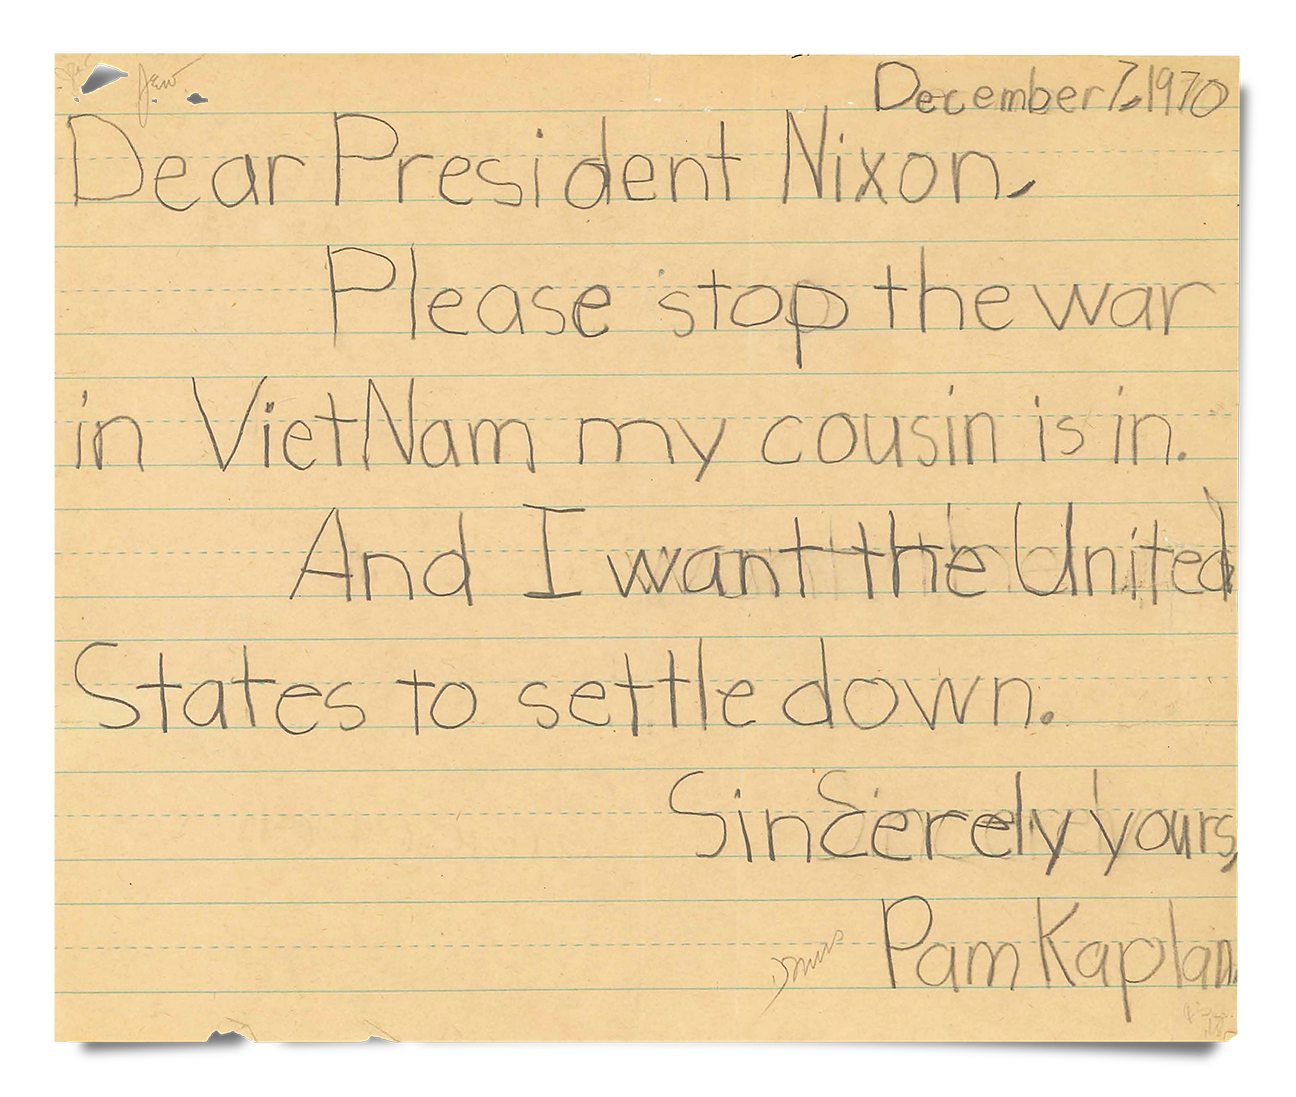 December 7, 1970
Dear President Nixon,
Please stop the war
in VietNam my cousin is in.
And I want the United
States to settle down.
Sincerely yours,
Pam Kaplan.